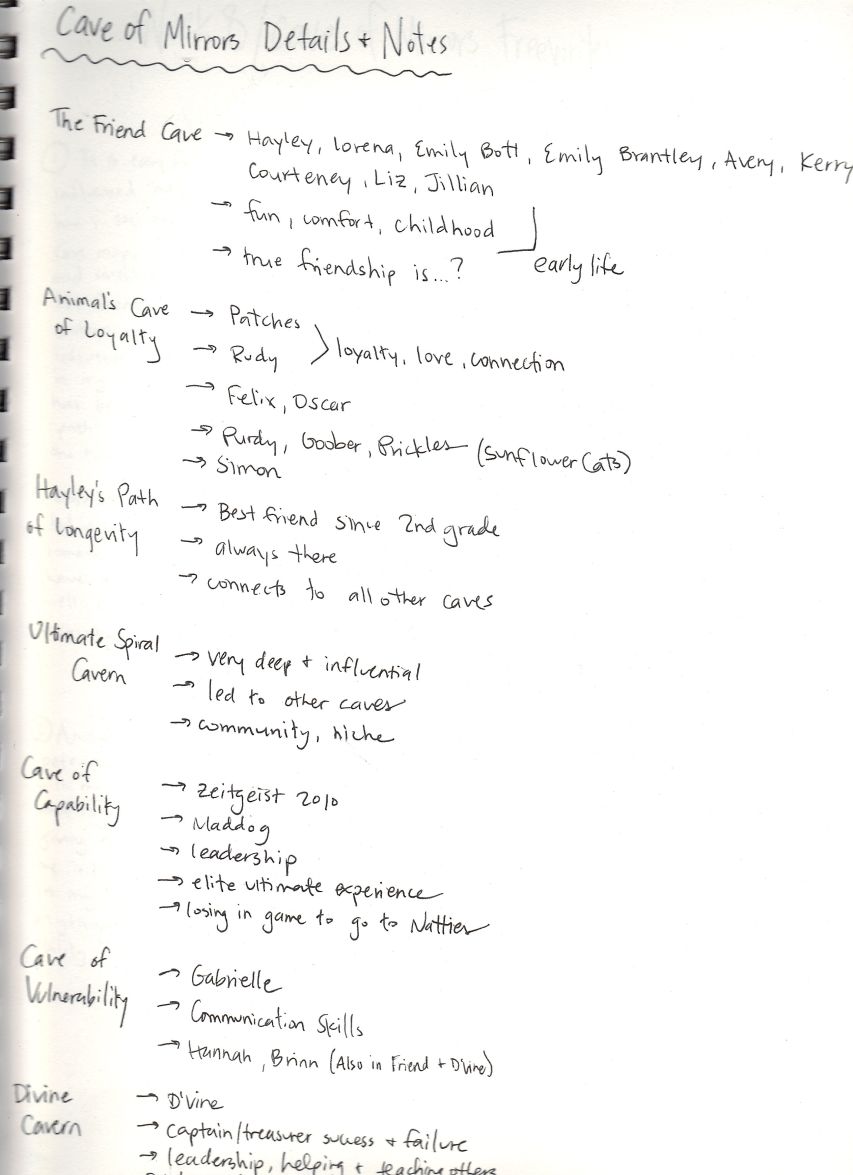 Cave of Mirrors Details + Notes
The Friend Cave → Hayley, Lorena, Emily Bott, Emily Brantley, Avery, Kerry
Courteney, Liz, Jillian
→ fun, comfort, childhood
→ true friendship is...? early life
Animal's Cave of Loyalty → Patches
→ Rudy > loyalty, love, connection
→ Felix, Oscar
→ Purdy, Goober, Prickles (Sunflower Cats)
→ Simon
Hayley's Path of Longevity → Best friend since 2nd grade
→ always there
→ connects to all other caves
Ultimate Spiral Cavern → very deep + influential
→ led to other caves
→ community, niche
Cave of Capability → Zeitgeist 2010
→ Maddog
→ leadership
→ elite ultimate experience
→ losing in game to go to Natties
Cave of Vulnerability → Gabrielle
→ Communication Skills
→ Hannah, Brinn (Also in Friend + D'Vine)
Divine Cavern → D'Vine
→ captain/treasurer success + failure
→ leadership, helping + teaching others